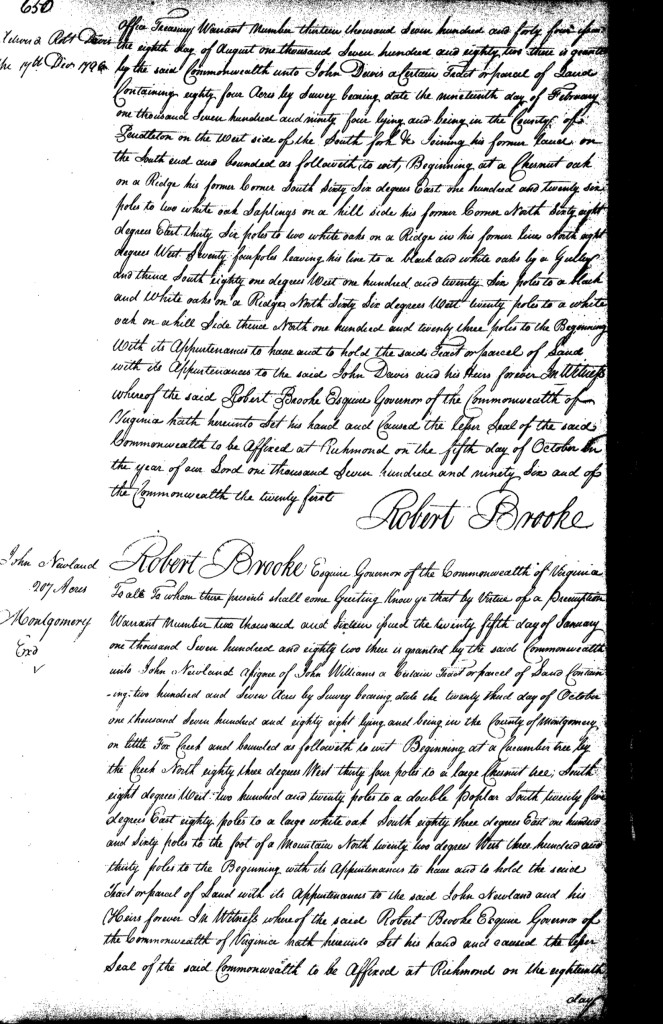 650
Office Treasury Warrant Number thirteen thousand Seven hundred and forty four issued
the eighth day of August one thousand Seven hundred and eighty two there is granted
by the said Commonwealth unto John Davis a Certain Tract or parcel of Land
Containing eighty four Acres by Survey bearing date the nineteenth day of February
one thousand Seven hundred and ninety four lying and being in the County of
Pendleton on the West side of the South fork & Joining his former Land on
the South end and bounded as followeth to wit, Beginning at a Chesnut oak
on a Ridge his former Corner South Sixty Six degrees East one hundred and twenty six
poles to two white oak Saplings on a hill side his former Corner North Sixty eight
degrees East thirty Six poles to two white oaks on a Ridge in his former line North eight
degrees West Seventy four poles leaving his line to a black and white oaks by a Gulley
and thence South eighty one degrees West one hundred and twenty Six poles to a black
and White oaks on a Ridge North Sixty Six degrees West twenty poles to a white
oak on a hill Side thence North one hundred and twenty three poles to the Beginning
With its Appurtenances to have and to hold the said Tract or parcel of Land
with its Appurtenances to the said John Davis and his Heirs forever In Witness
whereof the said Robert Brooke Esquire Governor of the Commonwealth of
Virginia hath hereunto Set his hand and Caused the lesser Seal of the said
Commonwealth to be Affixed at Richmond on the fifth day of October in
the year of our Lord one thousand Seven hundred and ninety Six and of
the Commonwealth the twenty first
Robert Brooke
John Newland
207 Acres
Montgomery
Exd
Robert Brooke Esquire Governor of the Commonwealth of Virginia
To all To whom these presents shall come Greeting Know ye that by Virtue of a Preemption
Warrant Number two thousand and Sixteen issued the twenty fifth day of January
one thousand Seven hundred and eighty two there is granted by the said Commonwealth
unto John Newland Assignee of John Williams a Certain Tract or parcel of Land Contain
-ing two hundred and Seven Acres by Survey bearing date the twenty third day of October
one thousand Seven hundred and eighty eight lying and being in the County of Montgomery
on little Fox Creek and bounded as followeth to wit Beginning at a Cucumber tree by
the Creek North eighty three degrees West thirty four poles to a large Chesnut tree; South
eight degrees West two hundred and twenty poles to a double poplar South twenty five
degrees East eighty poles to a large white oak South eighty three degrees East one hundred
and Sixty poles to the foot of a Mountain North twenty two degrees West three hundred and
thirty poles to the Beginning with its Appurtenances to have and to hold the said
Tract or parcel of Land with its Appurtenances to the said John Newland and his
Heirs forever In Witness whereof the said Robert Brooke Esquire Governor of
the Commonwealth of Virginia hath hereunto Set his hand and caused the lesser
Seal of the said Commonwealth to be Affixed at Richmond on the eighteenth
day